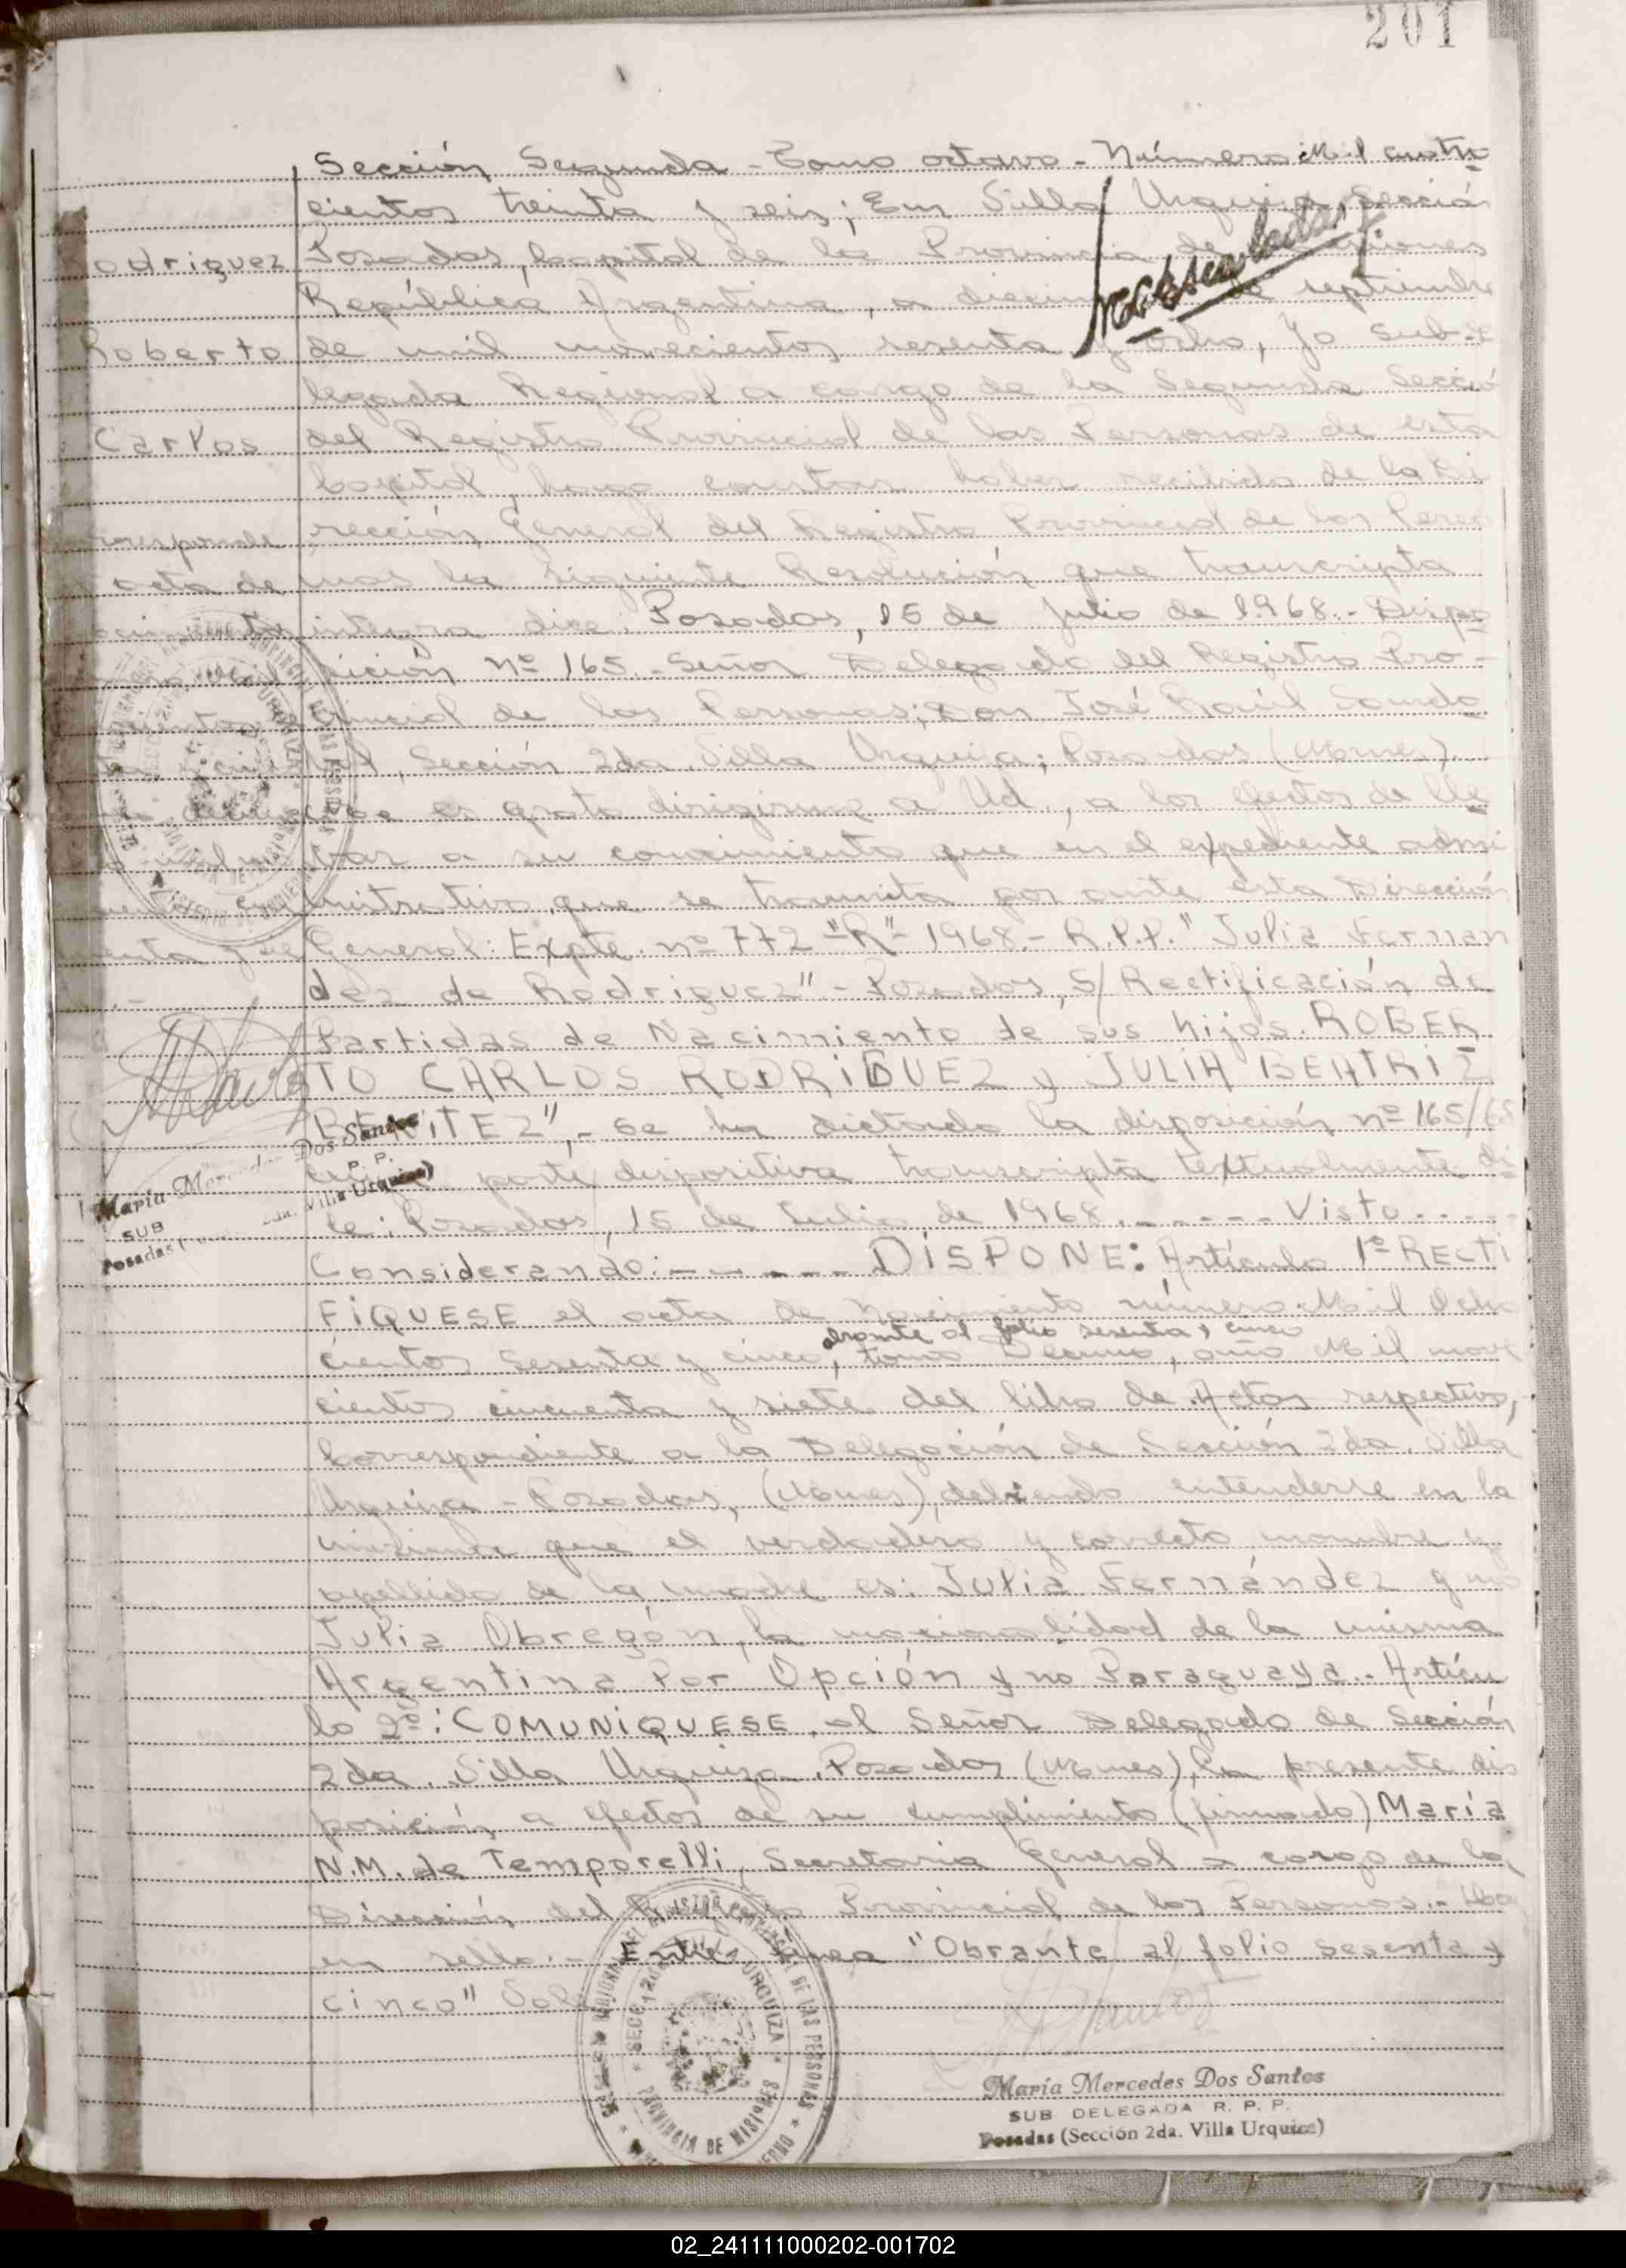 201
Sección Segunda - Tomo octavo - Número Mil cuatro
cientos treinta y seis; En Villa Urquiza, Sección
Rodriguez
Posadas, Capital de la Provincia de Misiones
República Argentina, a de septiembre
Roberto
de mil novecientos sesenta y ocho, Yo Sub-De
legada Regional a cargo de la Segunda Sección
Carlos
del Registro Provincial de las Personas de esta
Capital, hago constar haber recibido de la Di
rección General del Registro Provincial de las Perso
acta de
nas la siguiente Resolución que transcripta
integra dice. Posadas, 15 de Julio de 1968.- Dispo
sición nº 165.- Señor Delegado del Registro Pro-
vincial de las Personas; Don José Raúl Sando
val, Sección 2da. Villa Urquiza; Posadas (Mnes).
es grato dirigirme a Ud., a los efectos de lle
var a su conocimiento que en el expediente admi
nistrativo que se tramita por ante esta Dirección
General: Expte. nº 772 "R"- 1968.- R.P.P. "Julia Fernan
dez de Rodriguez".- Posadas, S/ Rectificación de
Partidas de Nacimiento de sus hijos. ROBER
TO CARLOS RODRIGUEZ y JULIA BEATRIZ
BENITEZ",- se ha dictado la disposición nº 165/68
cuya parte dispositiva transcripta textualmente di
ce: Posadas, 15 de Julio de 1968.------Visto-----
Considerando:------ DISPONE: Artículo 1º RECTI
FIQUESE el acta de nacimiento número Mil Ocho
obrante al folio sesenta y cinco
cientos sesenta y cinco, tomo Décimo, año Mil nove
cientos cincuenta y siete del libro de Actas respectivo,
Correspondiente a la Delegación de Sección 2da. Villa
Urquiza - Posadas, (Mnes), debiendo entenderse en la
misma que el verdadero y correcto nombre y
apellido de la madre es: Julia Fernández y no
Julia Obregón, la nacionalidad de la misma
Argentina Por Opción y no Paraguaya.- Artícu
lo 2º: COMUNIQUESE, al Señor Delegado de Sección
2da. Villa Urquiza. Posadas (Mnes), la presente dis
posición a efectos de su cumplimiento (firmado) María
N.M. de Temporelli, Secretaria General a cargo de la
Dirección del Registro Provincial de las Personas.- Hay
un sello.- Entre linea "Obrante al folio sesenta y
cinco" Vale
María Mercedes Dos Santos
SUB
Posadas
2da. Villa Urquiza)
SECC. 2da. VILLA URQUIZA
PROVINCIA DE MISIONES
María Mercedes Dos Santos
SUB DELEGADA R. P. P.
Posadas (Sección 2da. Villa Urquiza)
02_241111000202-001702